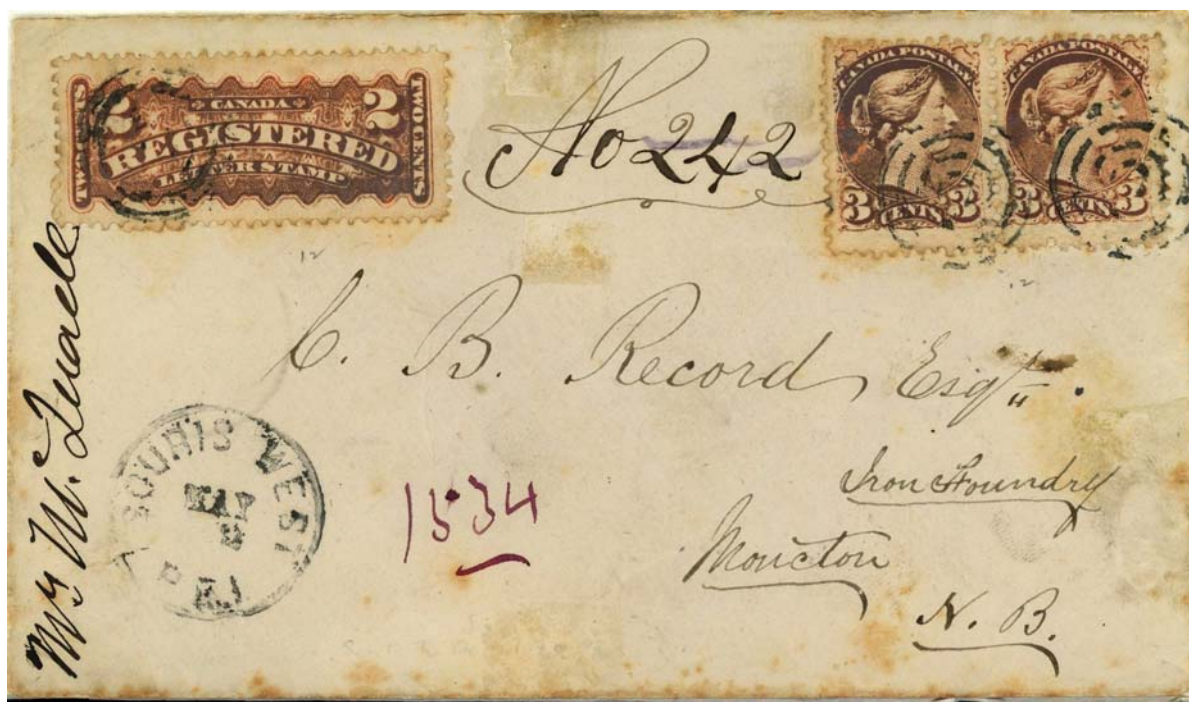 2 CANADA 2
REGISTERED
LETTER STAMP
TWO CENTS
No 242
CANADA POSTAGE
3 CENTS 3
CANADA POSTAGE
3 CENTS 3
C. B. Record Esqr.
Iron Foundry
Moncton
N. B.
1534
SOURIS WEST
P.E.I
Mrs M.